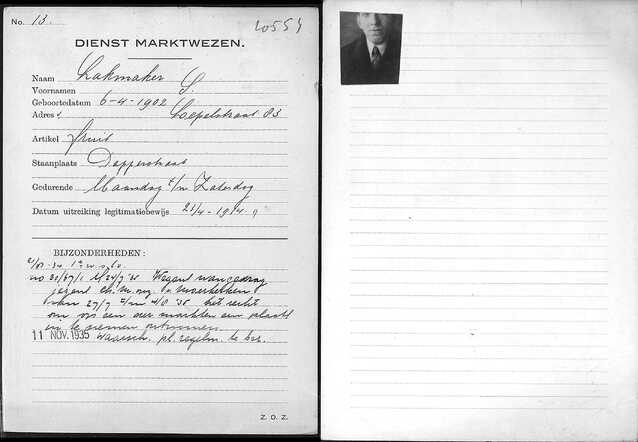 No. 13.
20554
DIENST MARKTWEZEN.
Naam Lakmaker
Voornamen S.
Geboortedatum 6-4-1902
Adres Lepelstraat 83
Artikel fruit
Staanplaats Dapperstraat
Gedurende Maandag t/m Zaterdag
Datum uitreiking legitimatiebewijs 21/4-1934
BIJZONDERHEDEN:
Wegens wangedrag
jegens
van 27/7 t/m het recht
om op een der markten een plaats
in te nemen ontnomen.
11 NOV. 1935 Waarsch. pl. regelm. te bez.
Z. O. Z.